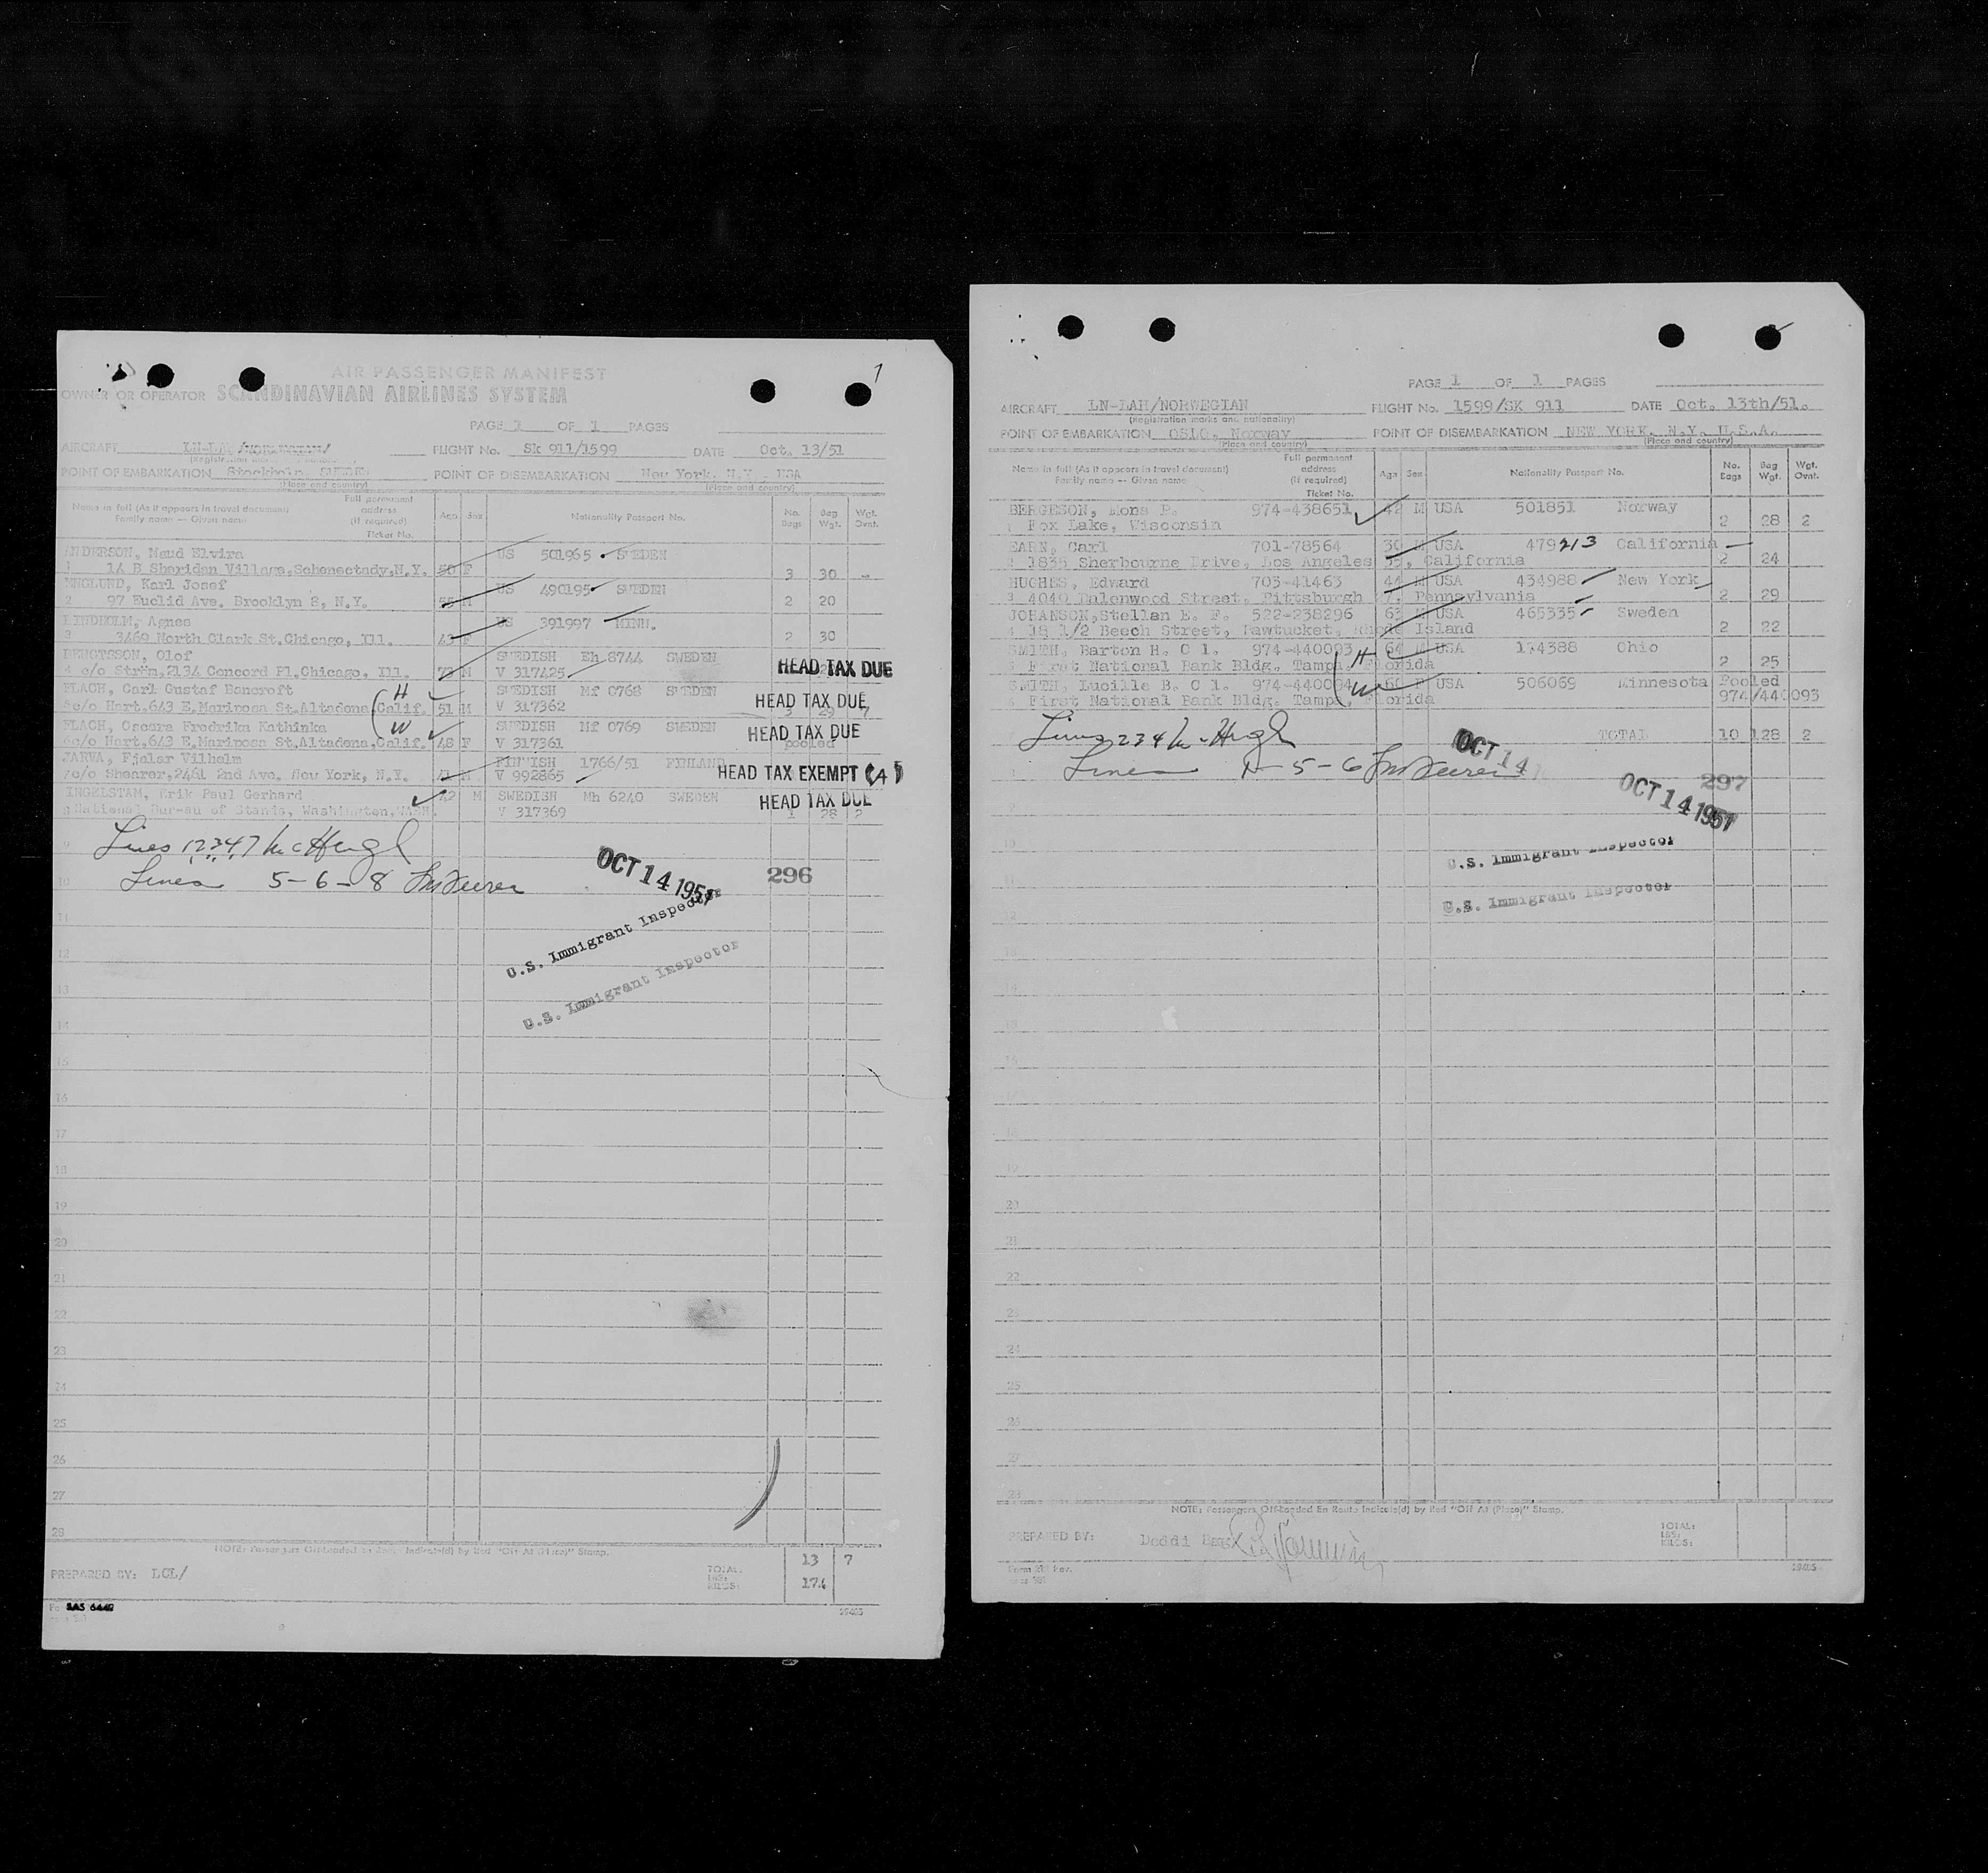 1
AIR PASSENGER MANIFEST
OWNER OR OPERATOR SCANDINAVIAN AIRLINES SYSTEM
PAGE 1 OF 1 PAGES
AIRCRAFT FLIGHT No. Sk 911/1599 DATE Oct. 13/51
POINT OF EMBARKATION Stockholm, SWEDEN POINT OF DISEMBARKATION New York, N.Y., USA
(Place and country) (Place and country)
Name in full (As it appears in travel document) Full permanent address (if required) Age Sex Nationality Passport No. No. Bags Bag Wgt. Wgt. Ovnt.
Family name -- Given name Ticket No.
ANDERSON, Maud Elvira US 501965 SWEDEN
1 1A B Sheridan Village, Schenectady, N.Y. 50 F 3 30 -
ENGLUND, Karl Josef US 490195 SWEDEN
2 97 Euclid Ave. Brooklyn 8, N.Y. 55 M 2 20
LINDHOLM, Agnes US 391997 MINN.
3 3469 North Clark St. Chicago, Ill. 43 F 2 30
BENGTSSON, Olof SWEDISH Eh 8744 SWEDEN
4 c/o Ström, 2134 Concord Pl, Chicago, Ill. M V 317425 HEAD TAX DUE
FLACH, Carl Gustaf Bancroft H SWEDISH Mf 0768 SWEDEN
5 c/o Hart, 643 E. Mariposa St. Altadena, Calif. 51 M V 317362 HEAD TAX DUE 3 29 7
FLACH, Oscara Fredrika Kathinka W SWEDISH Mf 0769 SWEDEN
6 c/o Hart, 643 E. Mariposa St. Altadena, Calif. 48 F V 317361 HEAD TAX DUE pooled
JARVA, Fjalar Vilhelm FINNISH 1766/51 FINLAND
7 c/o Shearer, 2461 2nd Ave. New York, N.Y. 41 M V 992865 HEAD TAX EXEMPT (4)
INGELSTAM, Erik Paul Gerhard 42 M SWEDISH Mh 6240 SWEDEN HEAD TAX DUE
8 National Bureau of Stands, Washington, WASH. V 317369 1 28 2
Lines 12347 McHugh
Lines 5-6-8
OCT 14 1951 296
U.S. Immigrant Inspector
U.S. Immigrant Inspector
11
12
13
14
15
16
17
18
19
20
21
22
23
24
25
26
27
28
NOTE: Passengers Off-loaded En Route Indicate(d) by Red "Off At (Place)" Stamp.
PREPARED BY: LCL/ TOTAL: LBS: KILOS: 13 7
174
SAS 6442
PAGE 1 OF 1 PAGES
AIRCRAFT LN-LAH/NORWEGIAN FLIGHT No. 1599/SK 911 DATE Oct. 13th/51.
(Registration marks and nationality)
POINT OF EMBARKATION OSLO, Norway POINT OF DISEMBARKATION NEW YORK, N.Y. U.S.A.
(Place and country) (Place and country)
Name in full (As it appears in travel document) Full permanent address (if required) Age Sex Nationality Passport No. No. Bags Bag Wgt. Wgt. Ovnt.
Family name -- Given name Ticket No.
BERGESON, Mons P. 974-438651 42 M USA 501851 Norway
1 Fox Lake, Wisconsin 2 28 2
EARN, Carl 701-78564 30 M USA 479213 California
2 1835 Sherbourne Drive, Los Angeles 35, California 2 24
HUGHES, Edward 703-41463 44 M USA 434988 New York
3 4040 Dalenwood Street, Pittsburgh 7, Pennsylvania 2 29
JOHANSON, Stellan E. F. 522-238296 63 M USA 465335 Sweden
4 18 1/2 Beech Street, Pawtucket, Rhode Island 2 22
SMITH, Barton H. C 1. 974-440093 H 64 M USA 174388 Ohio
5 First National Bank Bldg. Tampa, Florida 2 25
SMITH, Lucille B. C 1. 974-440094 W 60 F USA 506069 Minnesota Pooled
6 First National Bank Bldg. Tampa, Florida 974/440093
Lines 234 McHugh TOTAL 10 128 2
Lines 1-5-6
OCT 14
297
OCT 14 1951
U.S. Immigrant Inspector
U.S. Immigrant Inspector
14
19
20
21
22
23
24
25
26
27
28
NOTE: Passengers Off-loaded En Route Indicate(d) by Red "Off At (Place)" Stamp.
PREPARED BY: Deddi TOTAL: LBS: KILOS: